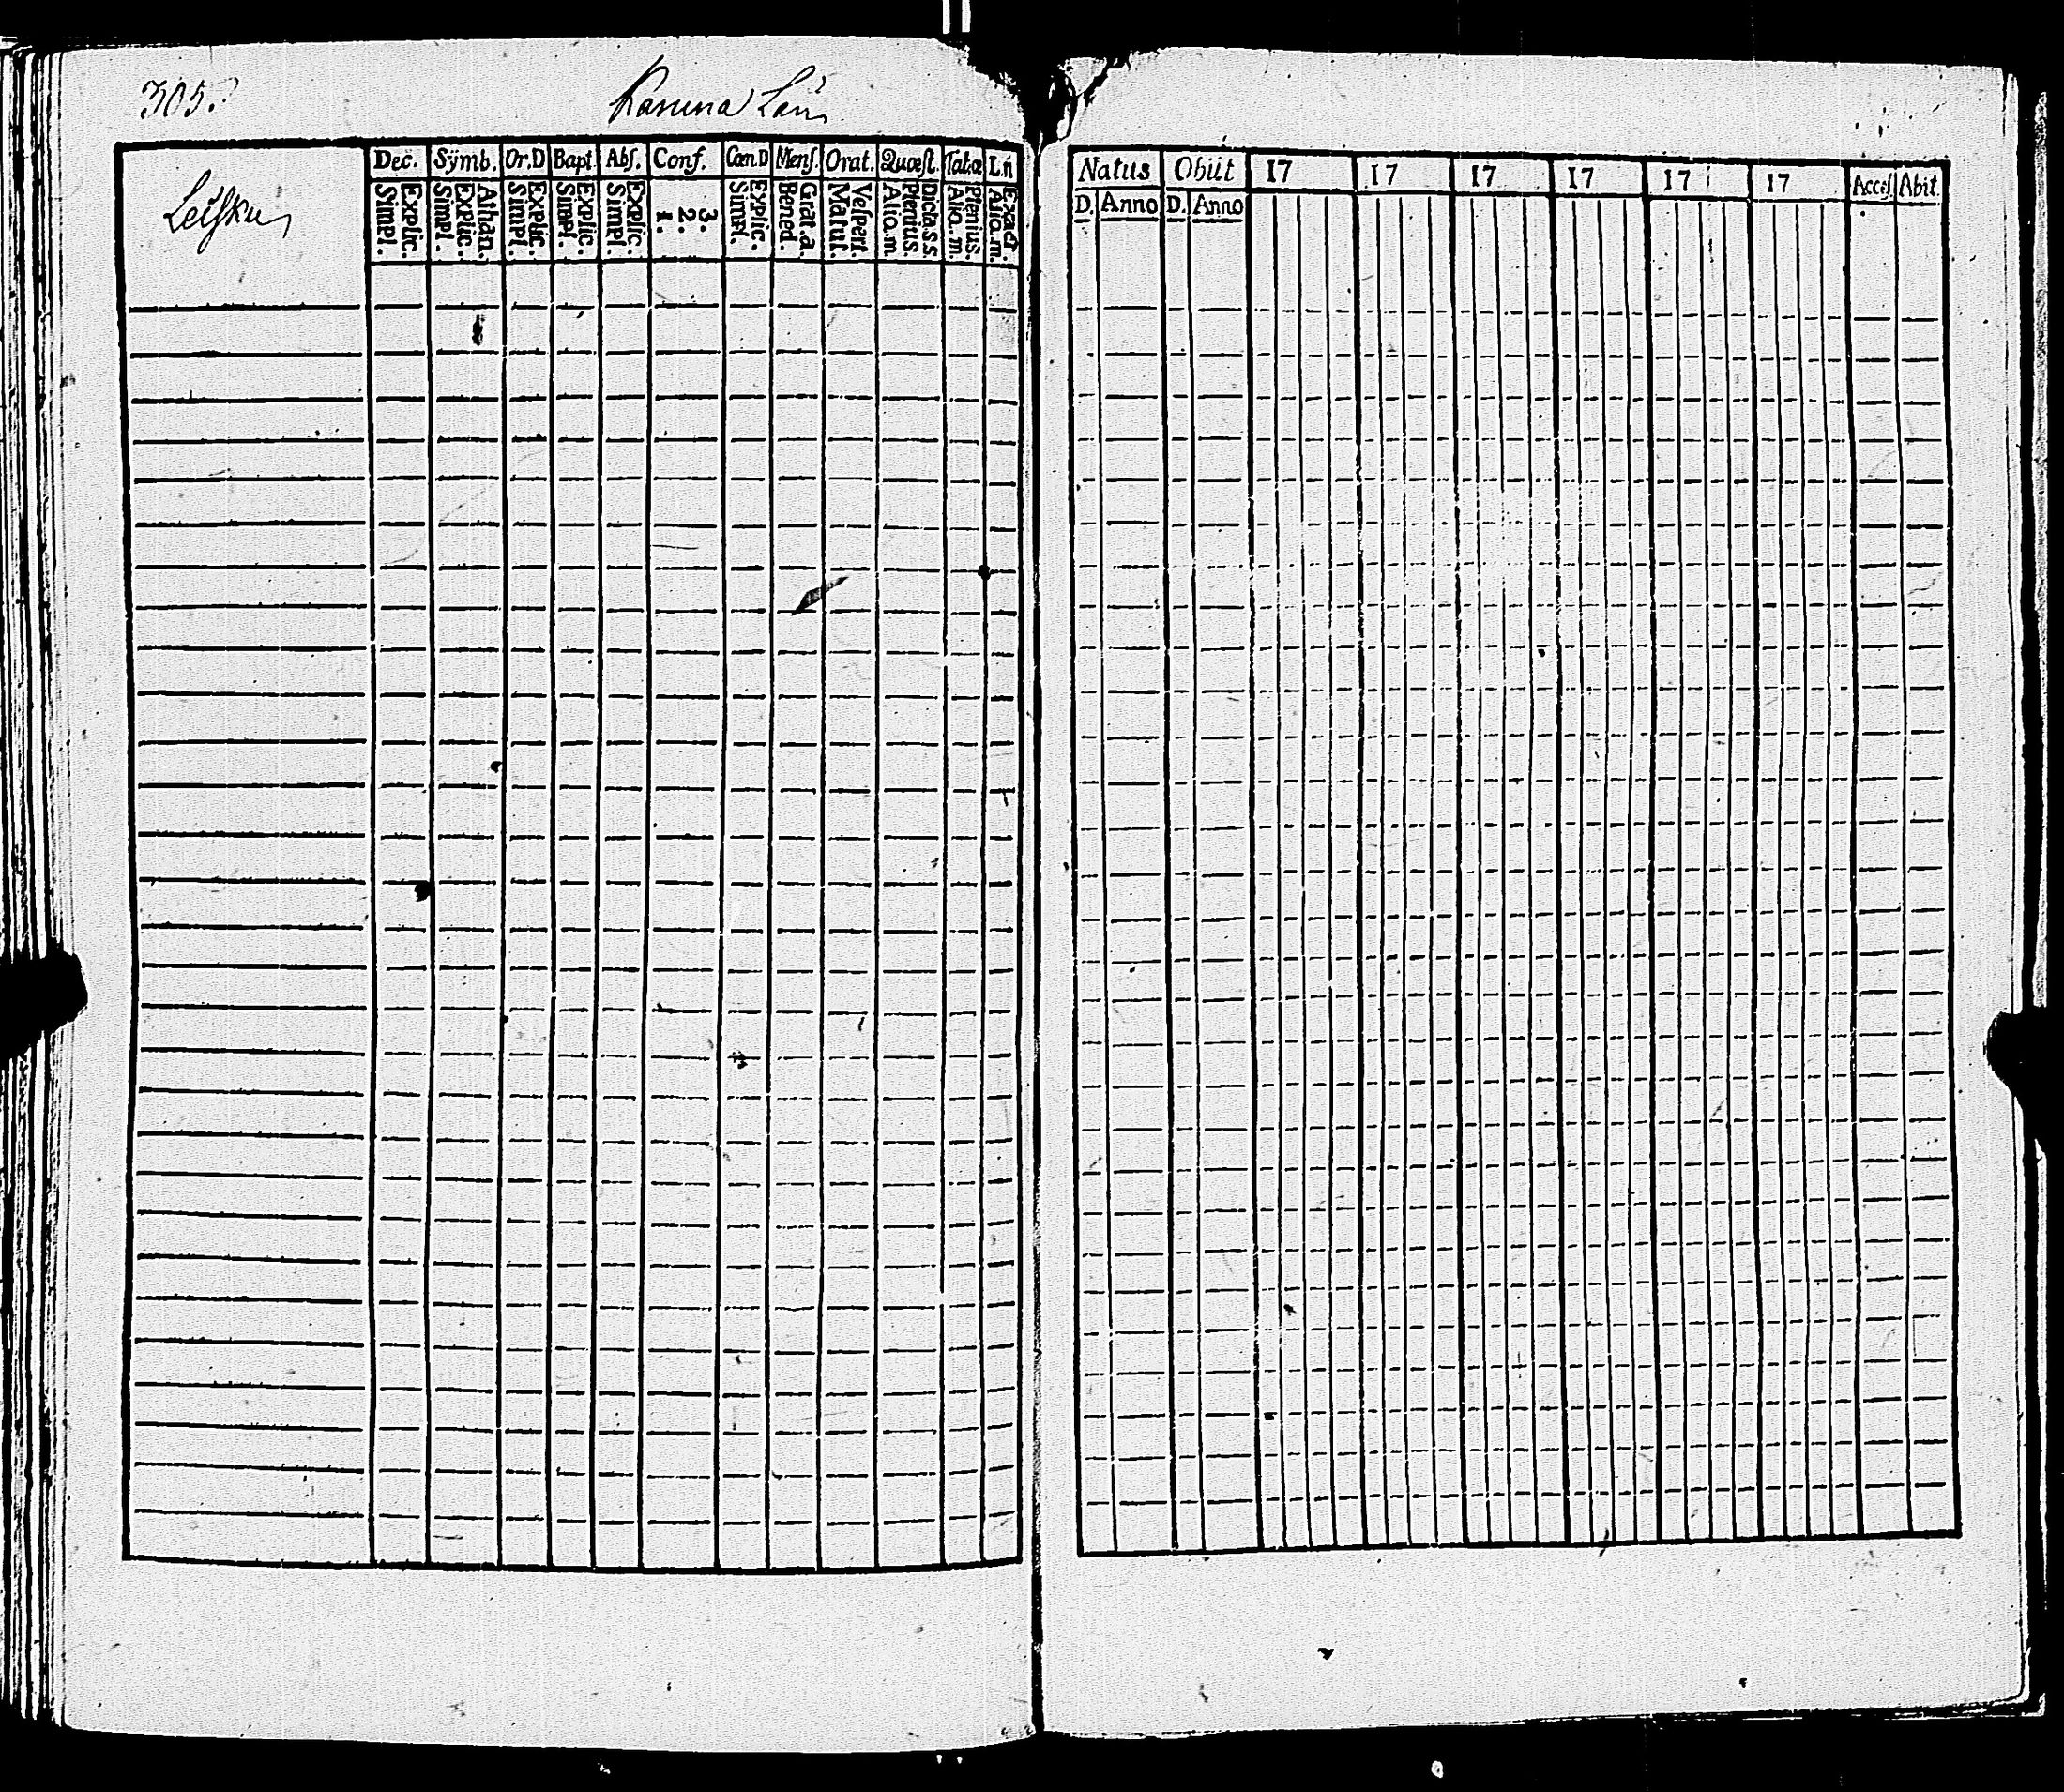 305.
Karuna Län
Leiskun
Dec. Sÿmb. Or.D Bapt. Abſ. Conf. Cœn.D Menſ. Orat. Quœſt. Tab.œ L.n
Explic. Simpl. Athan. Explic. Simpl. Explic. Simpl. Explic. Simpl. Explic. Simpl. 3. 2. 1. Explic. Simpl. Grat.a. Bened. Veſpert. Matut. Dicta.s.s. Plenius. Aliq.m. Plenius. Aliq.m. Exact. Aliq.m.
Natus Obiit 17 17 17 17 17 17 Acceſ. Abit.
D. Anno D. Anno